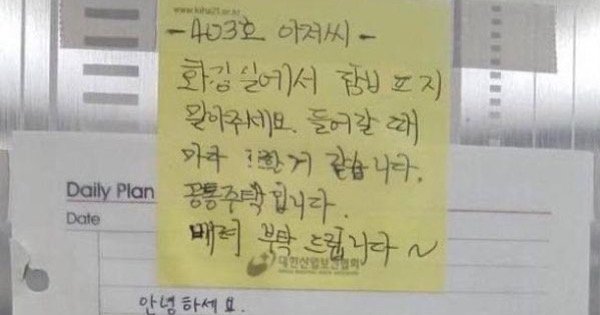 www.kiha21.or.kr
-403호 아저씨-
화장실에서 담배 피지
말아주세요. 들어갈 때
마다 같습니다.
공동주택 입니다.
배려 부탁 드립니다~
대한산업보건협회
Daily Plan
Date
안녕하세요.